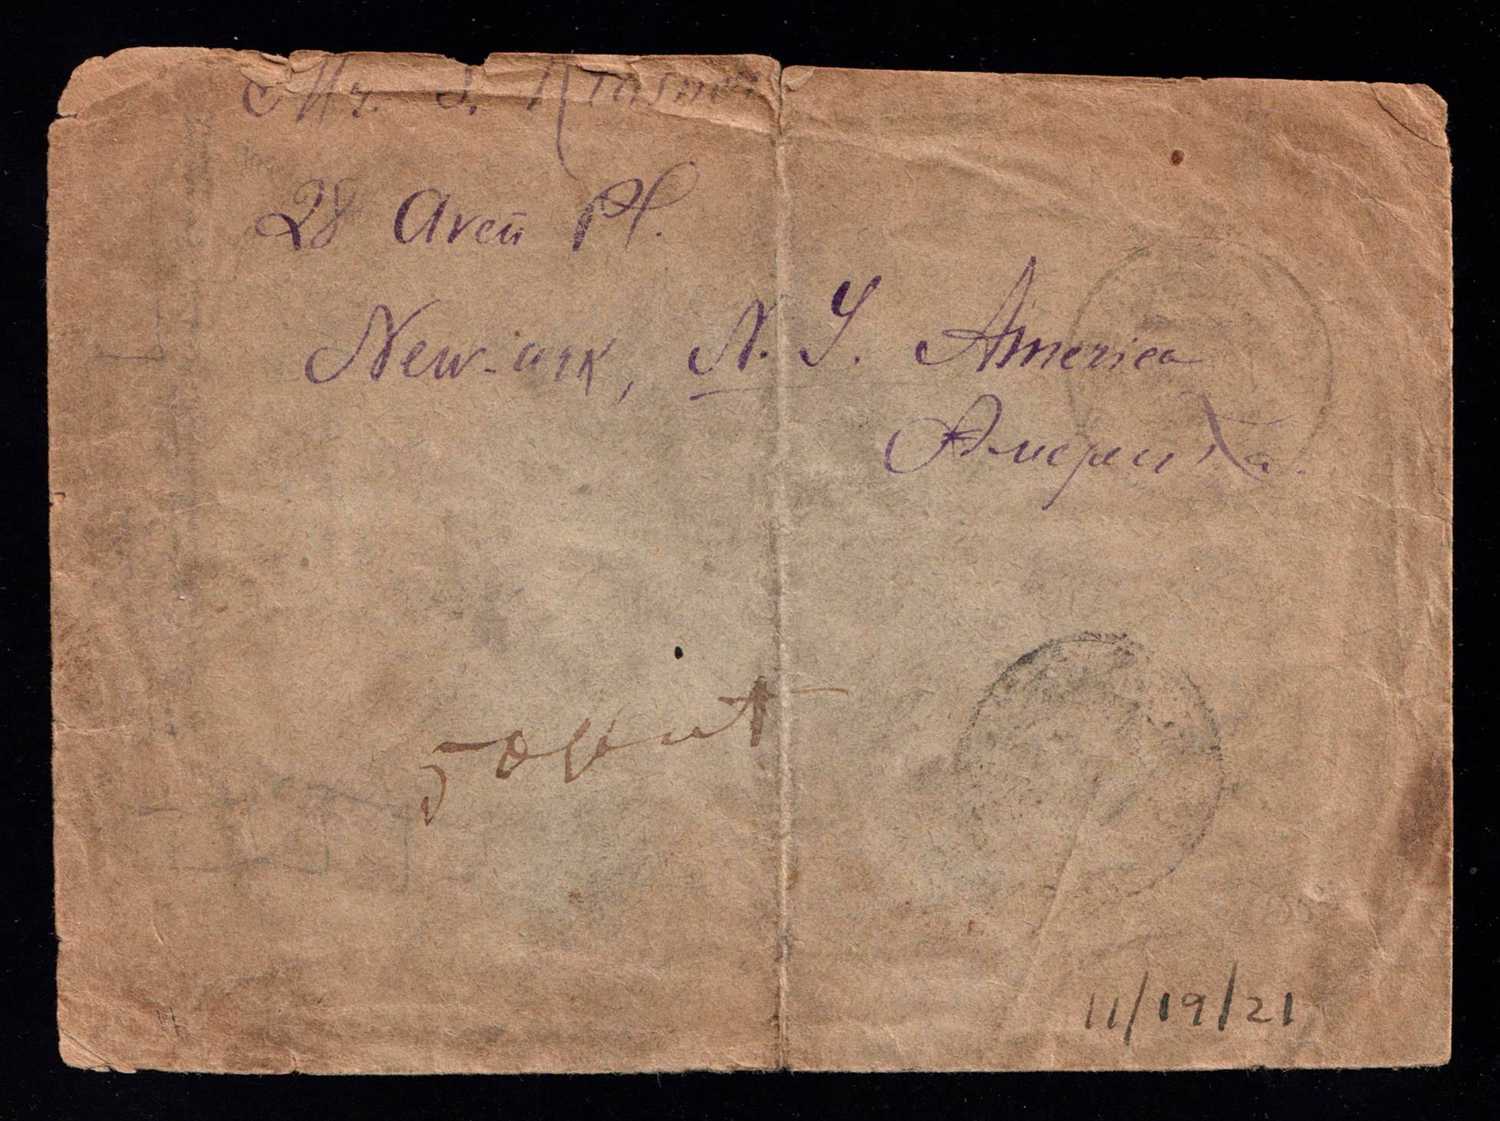 Mr. S. Krasner
28 Aven Pl.
New-ark, N. J. America
Америка.
11/19/21